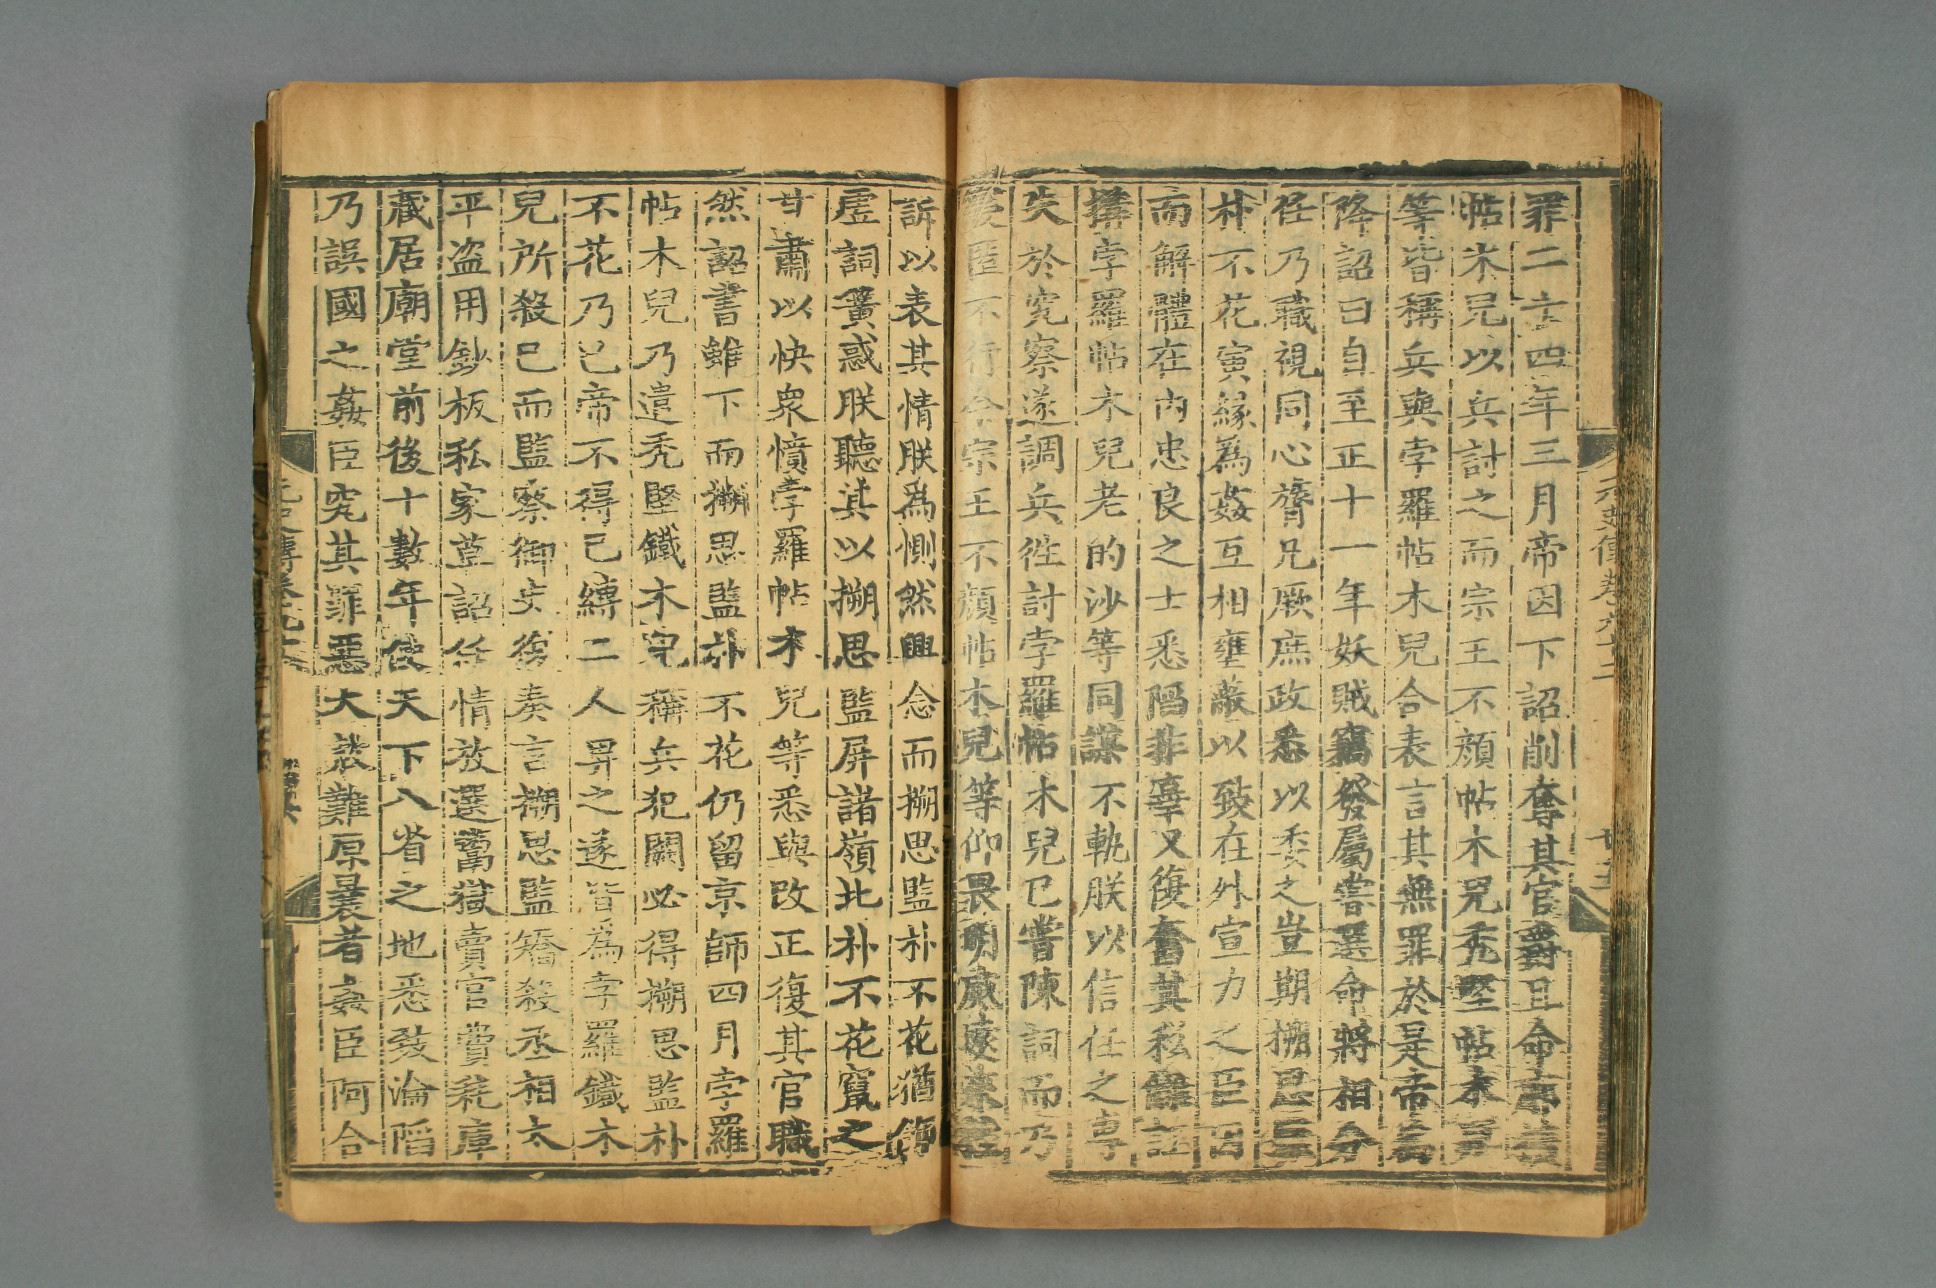 罪二十四年三月帝因下詔削奪其官爵且命擴廓
帖木兒以兵討之而宗王不顏帖木兒禿堅帖木兒
等皆稱兵與孛羅帖木兒合表言其無罪於是帝爲
降詔曰自至正十一年妖賊竊發屬嘗選命將相分
任乃職視同心膂凡厥庶政悉以委之豈期搠思監
朴不花寅緣為姦互相壅蔽以致在外宣力之臣因
而解體在內忠良之士悉陷非辜又復奮其私讎誣
搆孛羅帖木兒老的沙等同謀不軌朕以信任之專
失於究察遂調兵徃討孛羅帖木兒已嘗陳詞而乃
寢匿不行今宗王不顏帖木兒等仰畏明威遠來控
訴以表其情朕為惻然興念而搠思監朴不花猶飾
虛詞簧惑朕聽其以搠思監屏諸嶺北朴不花竄之
甘肅以快衆憤孛羅帖木兒等悉與改正復其官職
然詔書雖下而搠思監朴不花仍留京師四月孛羅
帖木兒乃遣禿堅鐵木兒稱兵犯闕必得搠思監朴
不花乃已帝不得已縛二人畀之遂皆為孛羅鐵木
兒所殺已而監察御史復奏言搠思監矯殺丞相太
平盜用鈔板私家草詔任情放選鬻獄賣官費耗庫
藏居廟堂前後十數年使天下八省之地悉致淪陷
乃誤國之姦臣究其罪惡大赦難原曩者姦臣阿合